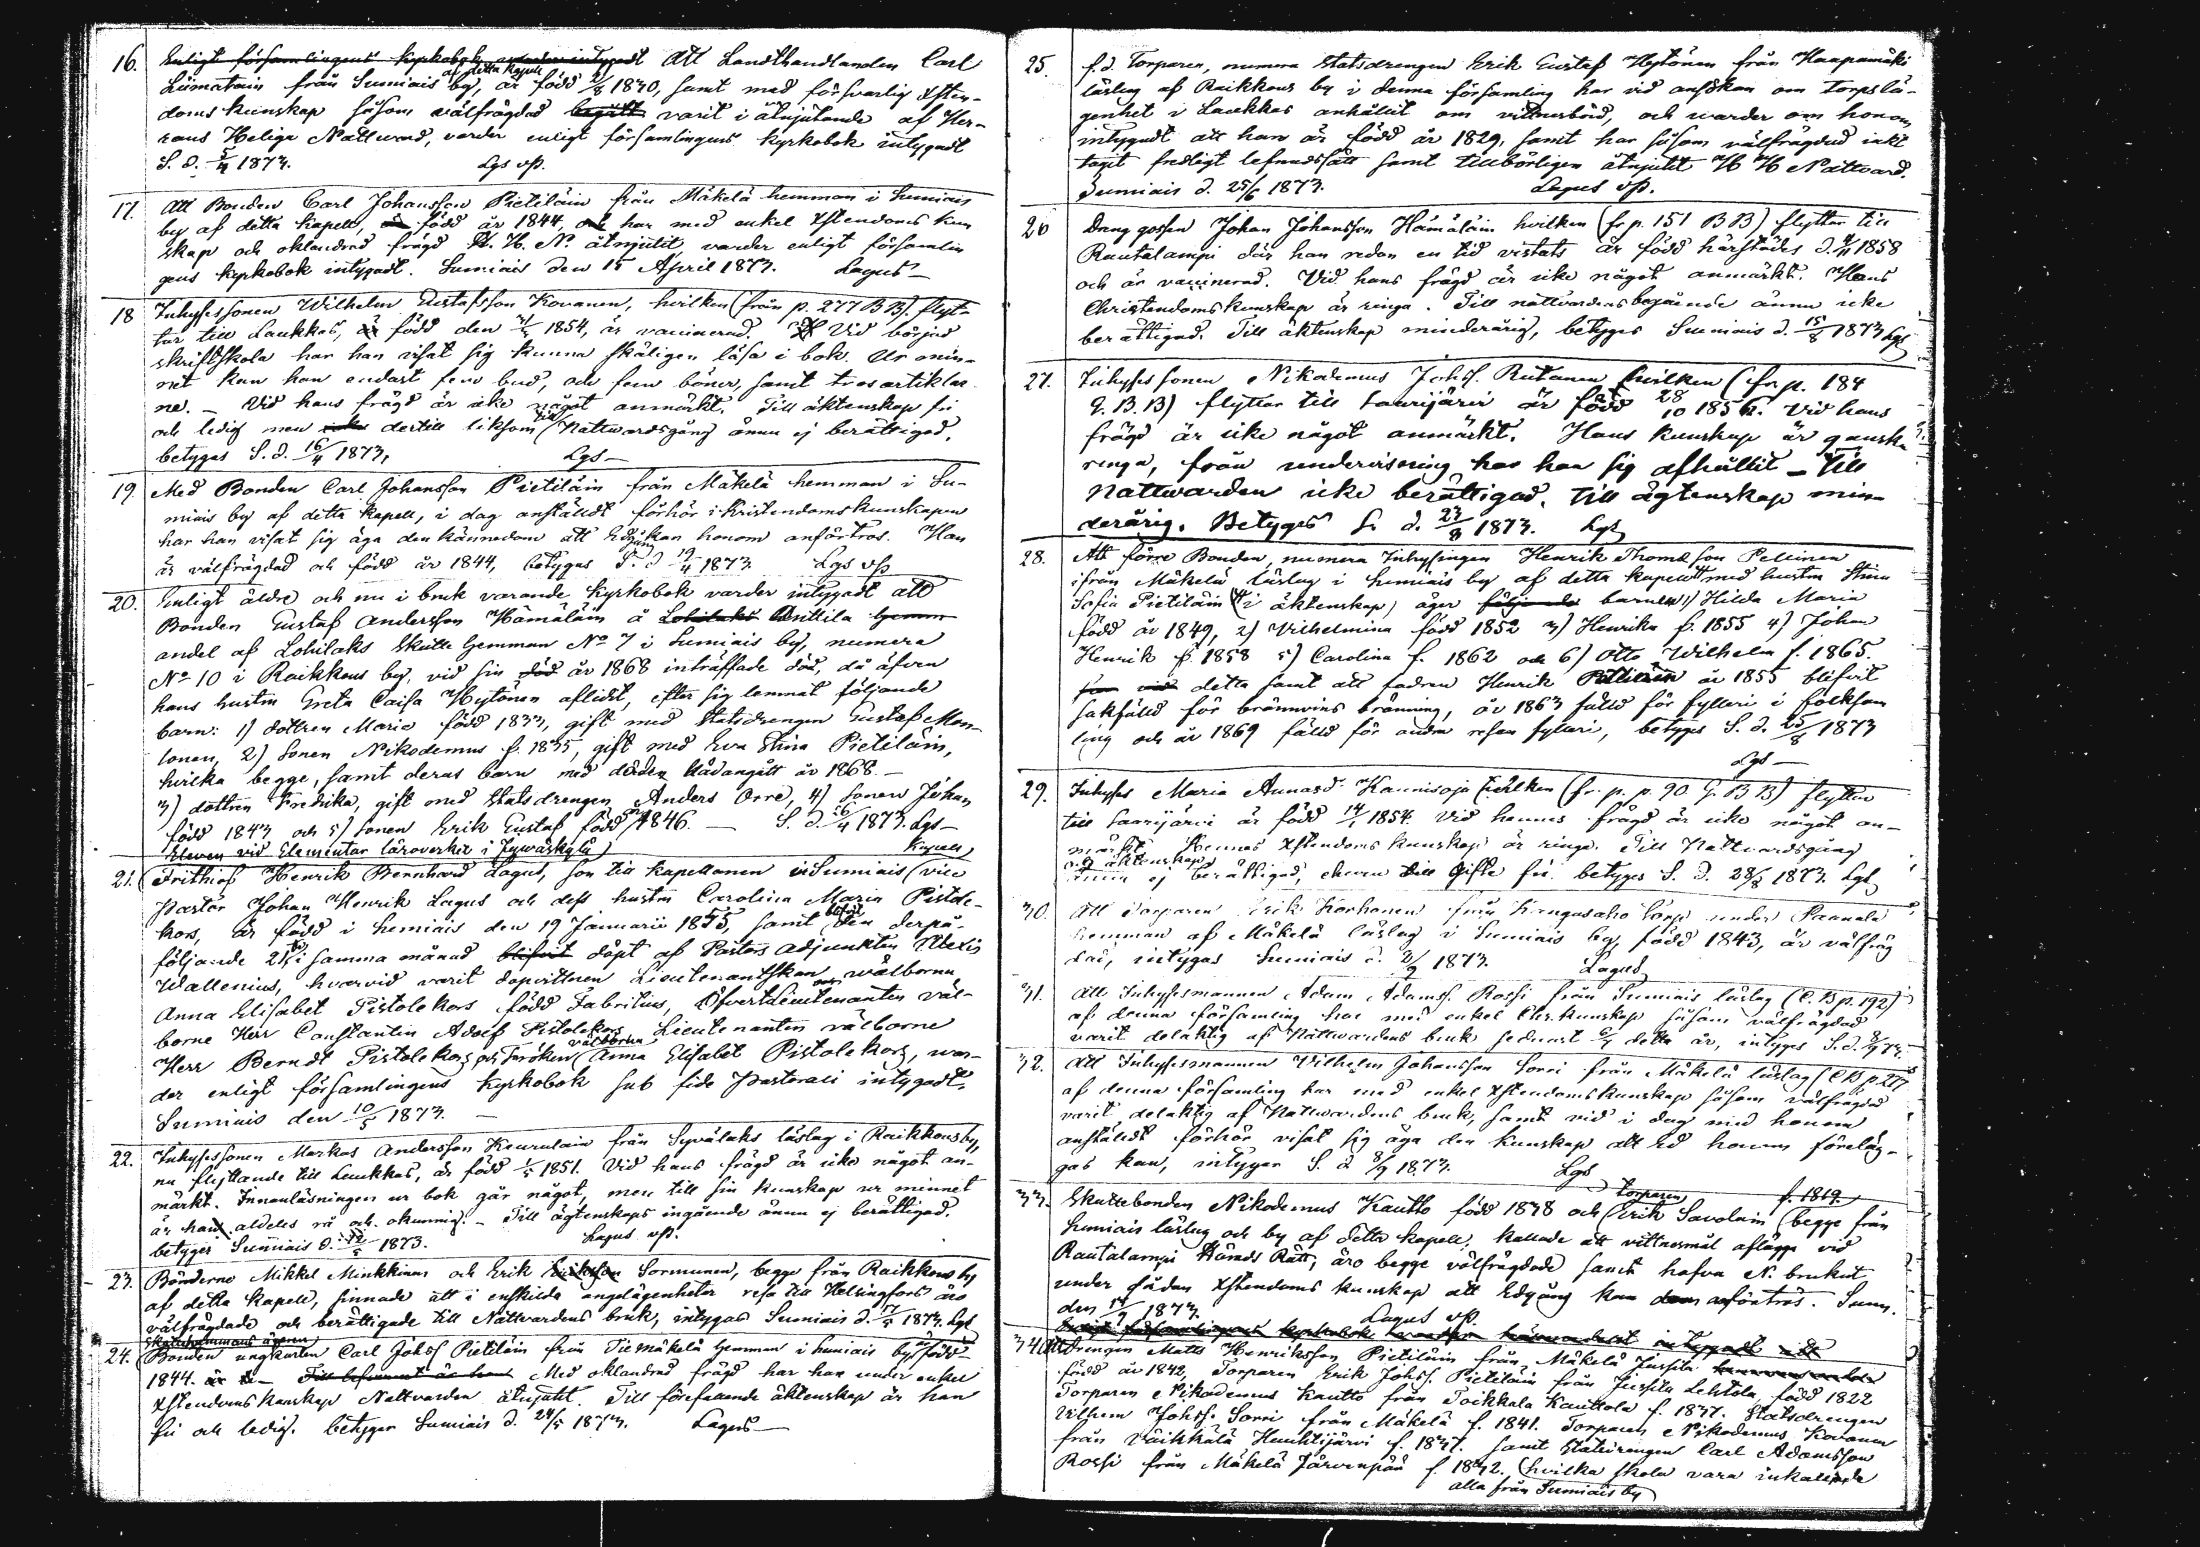 16. Enligt församlingens kyrkobok varder intygadt Att Landthandlanden Carl
Liimatain från Sumiais by, af detta kapell är född 2/8 1840, samt med försvarlig Xsten-
doms kunskap såsom wälfrägdad begått varit i åtnjutande af Her-
rans Heliga Nattward, varder enligt församlingens kyrkobok intygadt
S. d. 1873. Lgs vp.
17. Att Bonden Carl Johansson Pietiläin från Mäkelä hemman i Sumiais
by af detta kapell, är född år 1844, och har med enkel Xstendoms kun
skap och oklandrad frägd H. H. N. åtnjutit, varder enligt församlin
gens kyrkobok intygadt. Sumiais den 15 April 1873. Lagus
18 Inhysessonen Wilhelm Gustafsson Kovanen, hvilken (från p. 277 BB). flyt-
tar till Laukkas, är född den 1854, är vaccinerad. Vid börjad
skriftskola har han visat sig kunna skäligen läsa i bok. Ur min-
net kan han endast fem bud, och fem böner, samt trosartiklar
ne. – Vid hans frägd är icke något anmärkt. Till äktenskap fri
och ledig men dertill liksom till Nattwardsgång ännu ej berättigad,
betygas S. d. 16/4 1873, Lgs
19. Med Bonden Carl Johansson Pietiläin från Mäkelä hemman i Su-
miais by af detta kapell, i dag anstäldt förhör i kristendomskunskapen
har han visat sig äga den kännedom att Edgång kan honom anförtros. Han
är välfrägdad och född år 1844, betygas S. d. 19/4 1873 Lgs vp
20. Enligt äldre och nu i bruk varande kyrkobok varder intygadt att
Bonden Gustaf Andersson Hämäläin å Lohilaks Anttila hemm
andel af Lohilaks Skatte hemman No 7 i Sumiais by, numera
No 10 i Raikkous by, vid sin död år 1868 inträffade död, då äfven
hans hustru Greta Caisa Hytönen aflidit, efter sig lemnat följande
barn: 1) dottren Maria född 1833, gift med Statsdrengen Gustaf Mon-
tonen, 2) sonen Nikodemus f. 1835, gift med Eva Stina Pietiläin,
hvilka begge, samt deras barn med döden afgått år 1868.
3) dottren Fredrika, gift med Statsdrengen Anders Orre, 4) sonen Johan
född 1843 och 5) sonen Erik Gustaf född 1846. – S. d. 26/4 1873. Lgs
Eleven vid Elementar läroverket i Jywäskylä
21. Frithiof Henrik Bernhard Lagus, son till kapellanen i Sumiais vice
Pastor Johan Henrik Lagus och dess hustru Carolina Maria Pistole-
kors, är född i Sumiais den 19 Januarii 1855, samt den derpå-
följande 21 i samma månad blifvit döpt af Pastors adjunkten Alexis
Wallenius, hvarvid varit dopvittnen Lieutenantskan wälborna
Anna Elisabet Pistolekors född Fabritius, Öfverstlieutenanten väl-
borne Herr Constantin Adolf Pistolekors, Lieutenanten välborne
Herr Berndt Pistolekors och Fröken välborna Anna Elisabet Pistolekors, war-
der enligt församlingens kyrkobok sub fide pastorali intygadt,
Sumiais den 10/5 1873.
22. Inhysessonen Markus Andersson Keurulain från Syvälaks läslag i Raikkous by,
nu flyttande till Laukkas, är född 1851. Vid hans frägd är icke något an-
märkt. Innanläsningen ur bok går något, men till sin kunskap ur minnet
är han aldeles rå och okunnig. – Till ägtenskaps ingående ännu ej berättigad.
betygar Sumiais d. 1873. Lagus vp.
23. Bönderne Mikkel Minkkinen och Erik Eriksson Sormunen, begge från Raikkous by
af detta kapell, sinnade att i enskilda angelägenheter resa till Helsingfors äro
välfrägdade och berättigade till Nattvardens bruk, intygas Sumiais d. 17/5 1873. Lgs
24. Bonden ungkarlen Carl Johss Pietiläin från Tiemäkelä hemman i Sumiais by, född
1844. Med oklandrad frägd har han under enkel
Xstendomskunskap Nattvarden åtnjutit. Till förefallande äktenskap är han
fri och ledig. betygar Sumiais d. 24/5 1873. Lagus
25. f. d. Torparen, numera Statsdrengen Erik Gustaf Hytönen från Haapamäki
läslag af Raikkous by i denna församling har vid ansökan om torpslä-
genhet i Laukkas anhållit om vittnesbörd, och warder om honom
intygadt att han är född år 1829, samt har såsom välfrägdad iakt
tagit fredligt lefnadssätt samt tillbörligen åtnjutit H H Nattvard.
Sumiais d. 25/6 1873. Lagus vp.
26 Dreng gossen Johan Johansson Hämäläin hvilken (fr p. 151 BB) flyttar till
Rautalampi där han redan en tid vistats är född härstädes d. 1858
och är vaccinerad. Vid hans frägd är icke något anmärkt. Hans
Christendomskunskap är ringa. Till nattvardens begående ännu icke
berättigad. Till äktenskap minderårig, betyges Sumiais d. 15/8 1873 Lgs
27. Inhysessonen Nikodemus Johss. Rutanen hvilken (fr p. 184
G. B. B) flyttar till Saarijärvi är född 28/10 1856. Vid hans
frägd är icke något anmärkt. Hans kunskap är ganska
ringa, från undervisning har han sig afhållit – Till
nattwarden icke berättigad. Till ägtenskap min-
derårig. Betyges S. d. 23/8 1873. Lgs
28. Att förre Bonden, numera Inhysingen Henrik Thomasson Pellinen
ifrån Mäkelä läslag i Sumiais by af detta kapell med hustru Stina
Sofia Pietiläin (i äktenskap) äger följande barn 1) Hilda Maria
född år 1849, 2) Vilhelmina född 1852 3) Henrika f. 1855 4) Johan
Henrik f. 1858 5) Carolina f. 1862 och 6) Otto Wilhelm f. 1865.
detta samt att fadren Henrik år 1855 blifvit
sakfälld för brännvins bränning, år 1863 fälld för fylleri i folksam
ling och år 1869 fälld för andra resan fylleri, betyges S. d. 25/8 1873
Lgs
29. Inhyses Maria Annasd. Kaunisoja hvilken (fr. p. p. 90 G. BB) flyttar
till Saarijärvi är född 14/1 1854. Vid hennes frägd är icke något an-
märkt. Hennes Xstendoms kunskap är ringa. Till Nattvardsgång
och äktenskap ännu ej berättigad, ehuru till gifte fri betyges S. d. 28/8 1873. Lgs
30. Att Torparen Erik Korhonen från Kangasaho torp under Paanala
hemman af Mäkelä läslag i Sumiais by, född 1843, är välfräg
dad, intygas Sumiais d. 2/9 1873. Lagus
31. Att Inhysesmannen Adam Adamss. Rossi från Sumiais läslag (C. B p. 192)
af denna församling har med enkel Chr. kunskap såsom välfrägdad
varit delaktig af Nattvardens bruk sednast detta år, intyges S. d. 8/9 73.
32. Att Inhysesmannen Wilhelm Johansson Sorri från Mäkelä läslag (CB p 277
af denna församling har med enkel Xstendomskunskap såsom välfrägdad
varit delaktig af Nattwardens bruk, samt vid i dag med honom
anstäldt förhör visat sig äga den kunskap att ed honom föreläg-
gas kan, intygar S. d 8/9 1873. Lgs
33. Skattebonden Nikodemus Kautto född 1838 och torparen Erik Savolain f. 1819 (begge från
Sumiais läslag och by af detta kapell, kallade att vittnesmål aflägga vid
Rautalampi Härads Rätt, äro begge välfrägdade samt hafva N. brukat
under sådan Xstendoms kunskap att Edgång kan dem anförtros. Sum.
den 17/9 1873. Lagus vp.
34 Att Drengen Matts Henriksson Pietiläin från Mäkelä Jussila
född år 1842, Torparen Erik Johss. Pietiläin från Jussila Lehtola född 1822
Torparen Nikodemus Kautto från Toikkala Kauttola f. 1837. Statsdrengen
Vilhem Johss. Sorri från Mäkelä f. 1841. Torparen Nikodemus Kovanen
från Väikkälä Huuhtijärvi f. 1837. samt Statsdrengen Carl Adamsson
Rossi från Mäkelä Järvenpää f. 1842. (hvilka skola vara inkallade
alla från Sumiais by